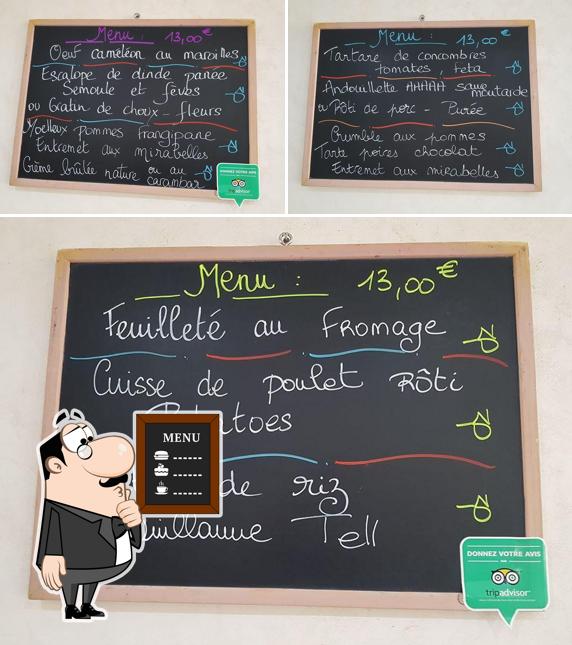 Menu : 13,00€
Oeuf caméléon au maroilles
Escalope de dinde panée
Semoule et fèves
ou Gratin de choux-fleurs
Moelleux pommes frangipane
Entremet aux mirabelles
Crème brûlée nature ou au
carambar
DONNEZ VOTRE AVIS
tripadvisor
Menu : 13,00€
Tartare de concombres
tomates, feta
Andouillette AAAAA sauce
moutarde
ou Rôti de porc - Purée
Crumble aux pommes
Tarte poires chocolat
Entremet aux mirabelles
Menu : 13,00€
Feuilleté au Fromage
Cuisse de poulet Rôti
de riz
Tell
MENU
DONNEZ VOTRE AVIS
tripadvisor